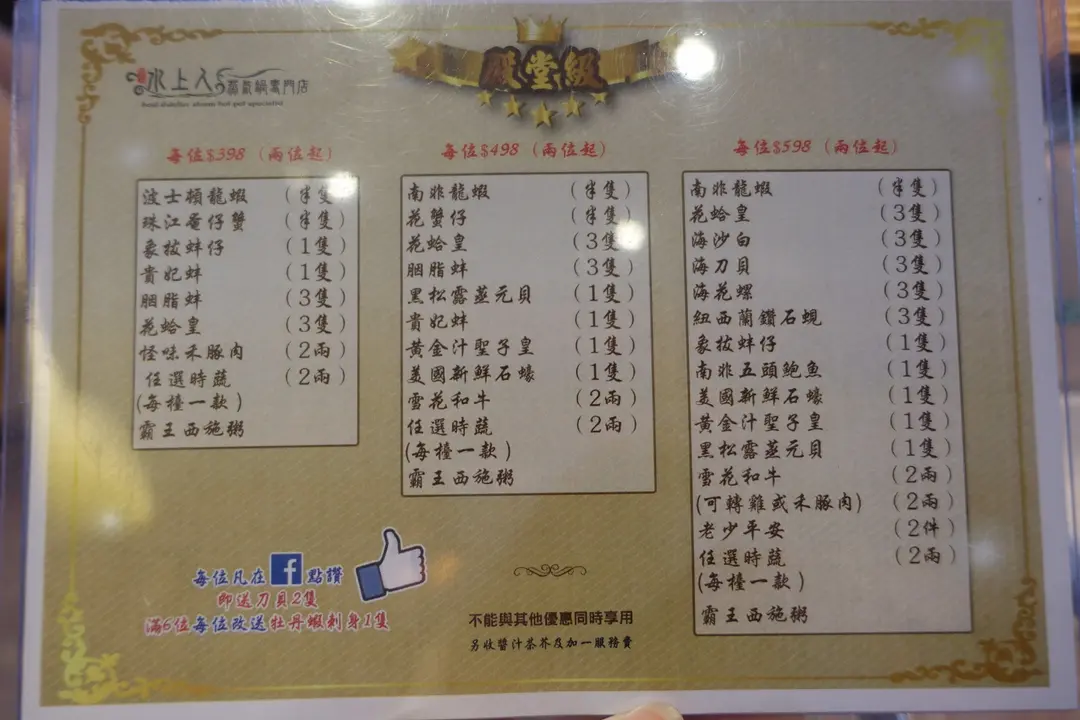 殿堂級
水上人蒸氣鍋專門店
每位$398 (兩位起)
波士頓龍蝦 (半隻)
珠江蛋仔蟹 (半隻)
象拔蚌仔 (1隻)
貴妃蚌 (1隻)
胭脂蚌 (3隻)
花蛤皇 (3隻)
怪味禾豚肉 (2兩)
任選時蔬 (2兩)
(每檯一款)
霸王西施粥
每位$498 (兩位起)
南非龍蝦 (半隻)
花蟹仔 (半隻)
花蛤皇 (3隻)
胭脂蚌 (3隻)
黑松露蒸元貝 (1隻)
貴妃蚌 (1隻)
黃金汁聖子皇 (1隻)
美國新鮮石蠔 (1隻)
雪花和牛 (2兩)
任選時蔬 (2兩)
(每檯一款)
霸王西施粥
每位$598 (兩位起)
南非龍蝦 (半隻)
花蛤皇 (3隻)
海沙白 (3隻)
海刀貝 (3隻)
海花螺 (3隻)
紐西蘭鑽石蜆 (3隻)
象拔蚌仔 (1隻)
南非五頭鮑魚 (1隻)
美國新鮮石蠔 (1隻)
黃金汁聖子皇 (1隻)
黑松露蒸元貝 (1隻)
雪花和牛 (2兩)
(可轉雞或禾豚肉) (2兩)
老少平安 (2件)
任選時蔬 (2兩)
(每檯一款)
霸王西施粥
每位凡在f點讚
即送刀貝2隻
滿6位每位改送牡丹蝦刺身1隻
不能與其他優惠同時享用
另收醬汁茶芥及加一服務費